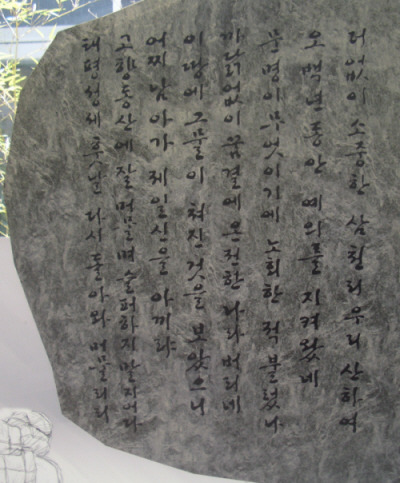 더없이 소중한 삼천리 우리 산하여
오백년 동안 예의를 지켜왔네
문명이 무엇이기에 노회한 적 불렀나
까닭없이 꿈결에 온전한 나라 버리네
이 땅에 그물이 쳐진 것을 보았으니
어찌 남아가 제 일신을 아끼랴
고향동산에 잘 머물며 슬퍼하지 말지어다
태평성세 훗날 다시 돌아와 머물리라